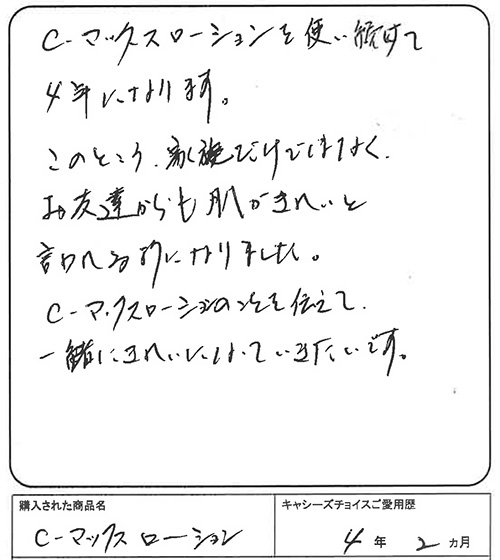 C-マックスローションを使い続けて
4年になります。
このところ、家族だけではなく、
お友達からも肌がきれいと
言われる様になりました。
C-マックスローションのことを伝えて、
一緒にきれいになっていきたいです。
購入された商品名
C-マックス ローション
キャシーズチョイスご愛用歴
4年 2ヵ月